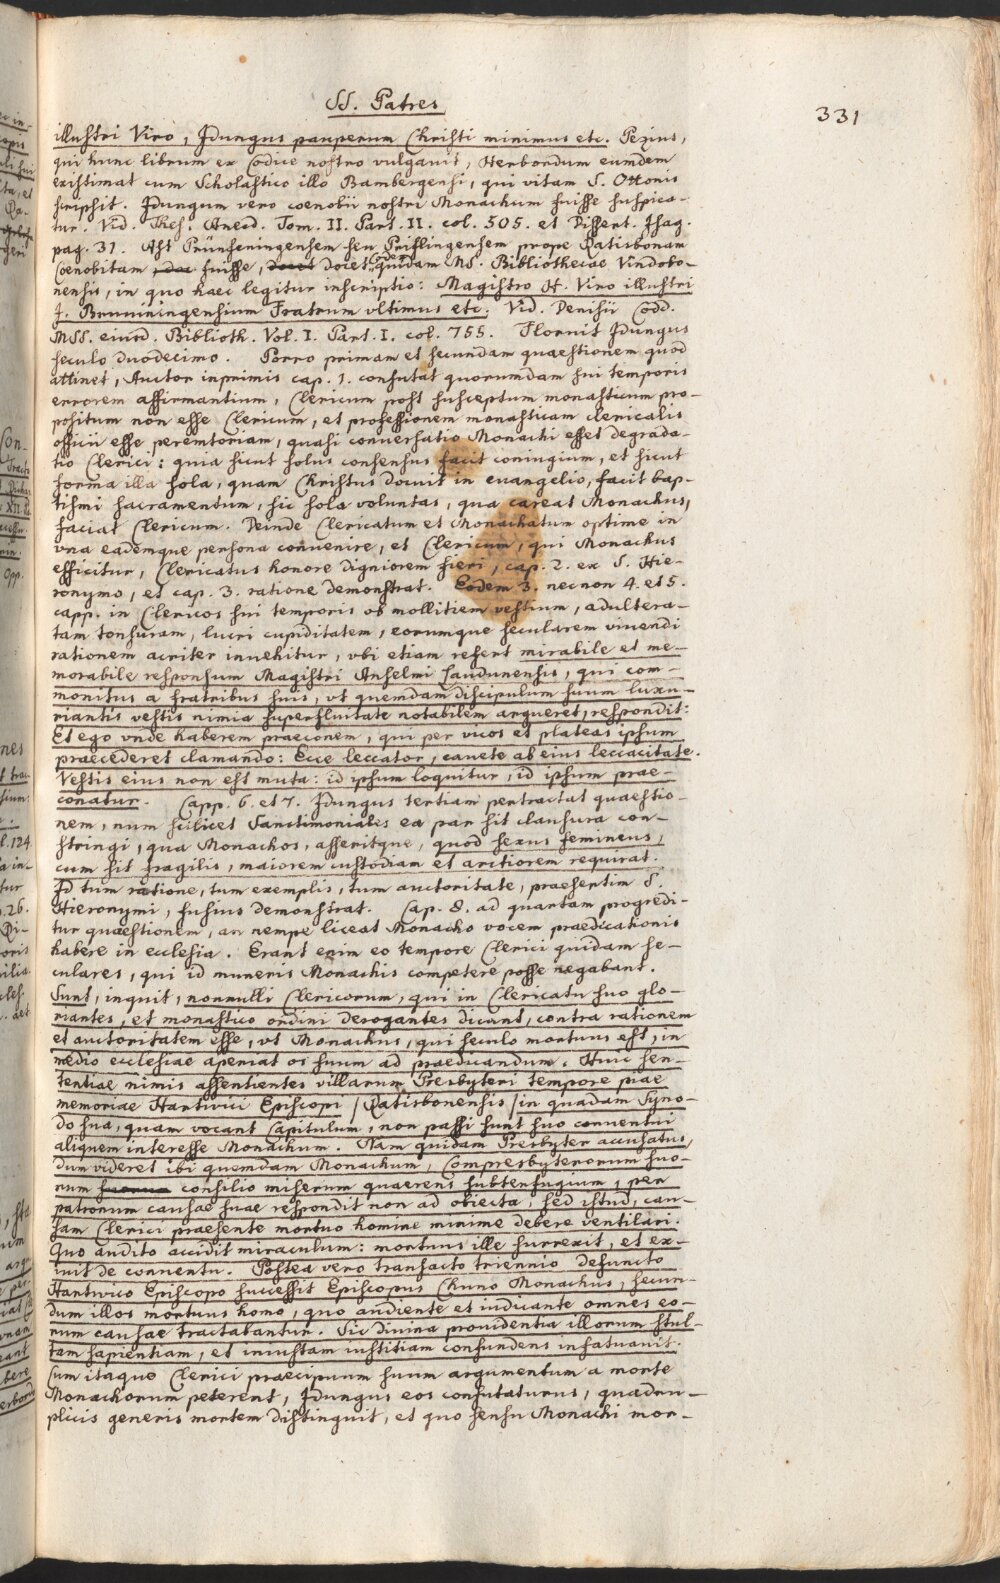 SS. Patres
331
illustri Viro, Idungus pauperum Christi minimus etc. Pezius,
qui hunc librum ex Codice nostro vulgauit, Herbordum eumdem
existimat cum Scholastico illo Bambergensi, qui vitam S. Ottonis
scripsit. Idungum vero coenobii nostri Monachum fuisse suspica-
tur. Vid. Thes. Anecd. Tom. II. Part. II. col. 505. et Dissert. Isag.
pag. 31. Ast Prünfeningensem seu Prifflingensem prope Ratisbonam
Coenobitam fuisse, docet Codex quidam MS. Bibliothecae Vindobo-
nensis, in quo haec legitur inscriptio: Magistro H. Viro illustri
I. Brunningensium Fratrum vltimus etc. Vid. Denisii Codd.
MSS. eiusd. Biblioth. Vol. I. Part. I. col. 755. Floruit Idungus
seculo duodecimo. Porro primam et secundam quaestionem quod
attinet, Auctor inprimis cap. 1. confutat quorumdam sui temporis
errorem affirmantium, Clericum post susceptum monasticum pro-
positum non esse Clericum, et professionem monasticam clericalis
officii esse peremtoriam, quasi conuersatio Monachi esset degrada-
tio Clerici: quia sicut solus consensus facit coniugium, et sicut
forma illa sola, quam Christus docuit in euangelio, facit bap-
tismi sacramentum, sic sola voluntas, qua careat Monachus,
faciat Clericum. Deinde Clericatum et Monachatum optime in
vna eademque persona conuenire, et Clericum, qui Monachus
efficitur, Clericatus honore digniorem fieri, cap. 2. ex S. Hie-
ronymo, et cap. 3. ratione demonstrat. Eodem 3. nec non 4. et 5.
capp. in Clericos sui temporis ob mollitiem vestium, adultera-
tam tonsuram, lucri cupiditatem, eorumque secularem viuendi
rationem acriter inuehitur, vbi etiam refert mirabile et me-
morabile responsum Magistri Anselmi Laudunensis, qui com-
monitus a fratribus suis, vt quemdam discipulum suum luxu-
riantis vestis nimia superfluitate notabilem argueret, respondit:
Et ego vnde haberem praeconem, qui per vicos et plateas ipsum
praecederet clamando: Ecce leccator, cauete ab eius leccacitate.
Vestis eius non est muta: id ipsum loquitur, id ipsum prae-
conatur. Capp. 6. et 7. Idungus tertiam pertractat quaestio-
nem, num scilicet Sanctimoniales ea par sit clausura con-
stringi, qua Monachos, asseritque, quod sexus femineus,
cum sit fragilis, maiorem custodiam et arctiorem requirat.
Id tum ratione, tum exemplis, tum auctoritate, praesertim S.
Hieronymi, fusius demonstrat. Cap. 8. ad quartam progredi-
tur quaestionem, an nempe liceat Monacho vocem praedicationis
habere in ecclesia. Erant enim eo tempore Clerici quidam se-
culares, qui id muneris Monachis competere posse negabant.
Sunt, inquit, nonnulli Clericorum, qui in Clericatu suo glo-
riantes, et monastico ordini derogantes dicunt, contra rationem
et auctoritatem esse, vt Monachus, qui seculo mortuus est, in
medio ecclesiae aperiat os suum ad praedicandum. Huic sen-
tentiae nimis assentientes villarum Presbyteri tempore piae
memoriae Hartwici Episcopi /Ratisbonensis/ in quadam Syno-
do sua, quam vocant Capitulum, non passi sunt suo conuentui
aliquem interesse Monachum. Nam quidam Presbyter accusatus,
dum videret ibi quemdam Monachum, Compresbyterorum suo-
rum consilio miserum quaerens subterfugium, per
patronum causae suae respondit non ad obiecta, sed istud, cau-
sam Clerici praesente mortuo homine minime debere ventilari.
Quo audito accidit miraculum: mortuus ille surrexit, et ex-
iuit de conuentu. Postea vero transacto triennio defuncto
Hartwico Episcopo successit Episcopus Chuno Monachus, secun-
dum illos mortuus homo, quo audiente et iudicante omnes eo-
rum causae tractabantur. Sic diuina prouidentia illorum stul-
tam sapientiam, et iniustam iustitiam confundens infatuauit.
Cum itaque Clerici praecipuum suum argumentum a morte
Monachorum peterent, Idungus eos confutaturus, quadru-
plicis generis mortem distinguit, et quo sensu Monachi mor-